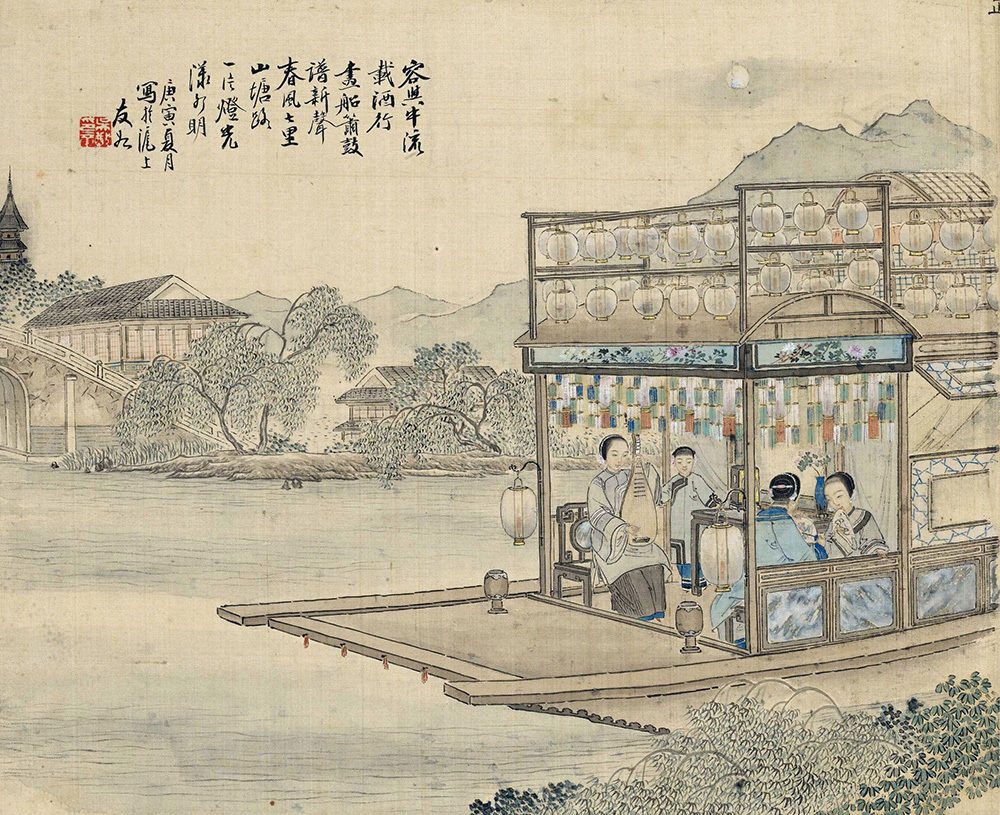 容與中流
載酒行
畫船簫鼓
譜新聲
春風七里
山塘路
一片燈光
漾水明
庚寅夏月
寫於滬上
友如